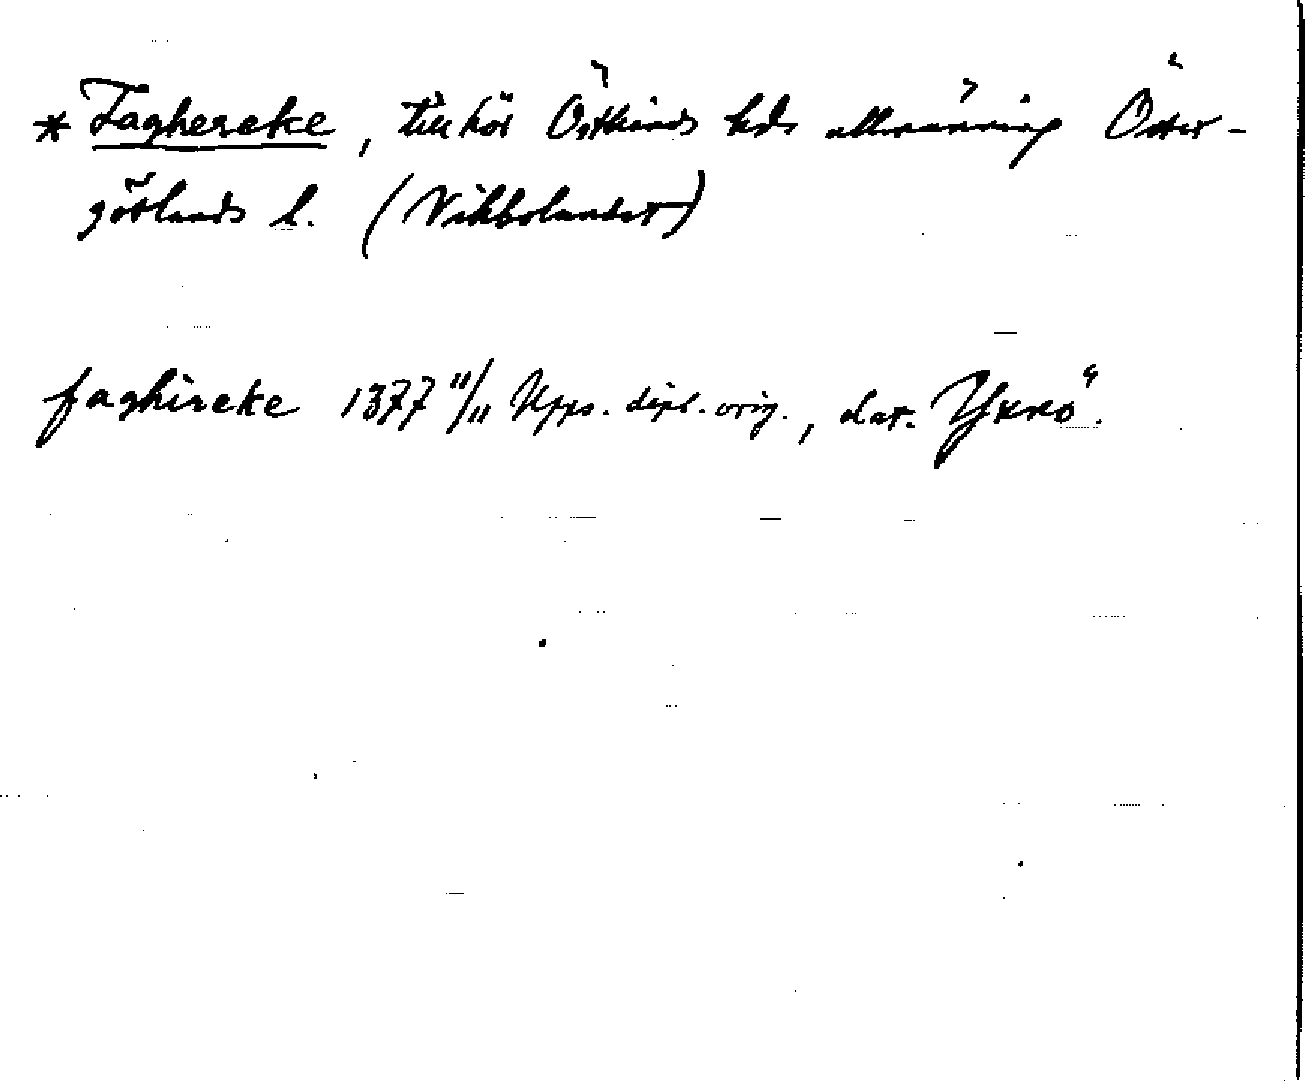 * Faghereke, tillhör Östkinds hds allmänning Öster-
götlands l. (Vikbolandet)
faghireke 1377 11/11 Upps. dipl. orig., dat. Yxnö.